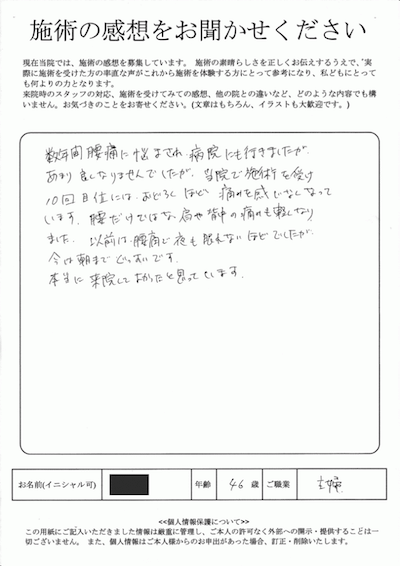 施術の感想をお聞かせください
現在当院では、施術の感想を募集しています。 施術の素晴らしさを正しくお伝えするうえで、実
際に施術を受けた方の率直な声がこれから施術を体験する方にとって参考になり、私どもにとって
も何よりの力となります。
来院時のスタッフの対応、施術を受けてみての感想、他の院との違いなど、どのような内容でも構
いません。お気づきのことをお寄せください。(文章はもちろん、イラストも大歓迎です。)
数年間腰痛に悩まされ、病院にも行きましたが、
あまり良くなりませんでしたが、当院で施術を受け
10回目位には、おどろくほど 痛みを感じなくなって
います。腰だけではなく、肩や背中の痛みも軽くなり
ました。以前は、腰痛で夜も眠れないほどでしたが、
今は朝までぐっすりです。
本当に来院してよかったと思っています。
お名前(イニシャル可) 年齢 46 歳 ご職業 主婦
<<個人情報保護について>>
この用紙にご記入いただきました情報は厳重に管理し、ご本人の許可なく外部への開示・提供することは一
切ございません。 また、個人情報はご本人様からのお申出があった場合、訂正・削除いたします。